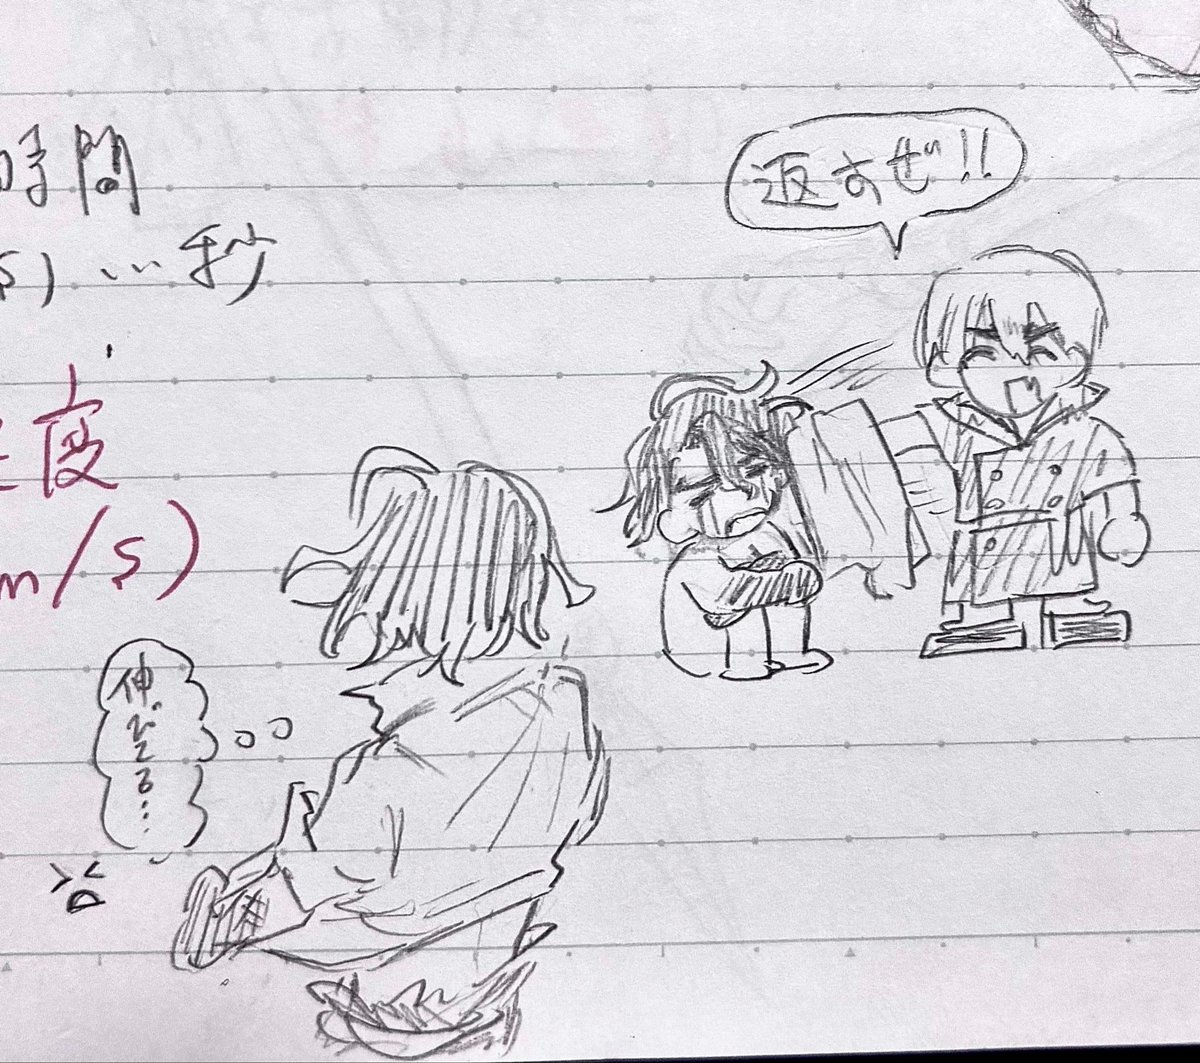 時間
s) … 秒
度
m/s)
返すぜ!!
伸びてる…